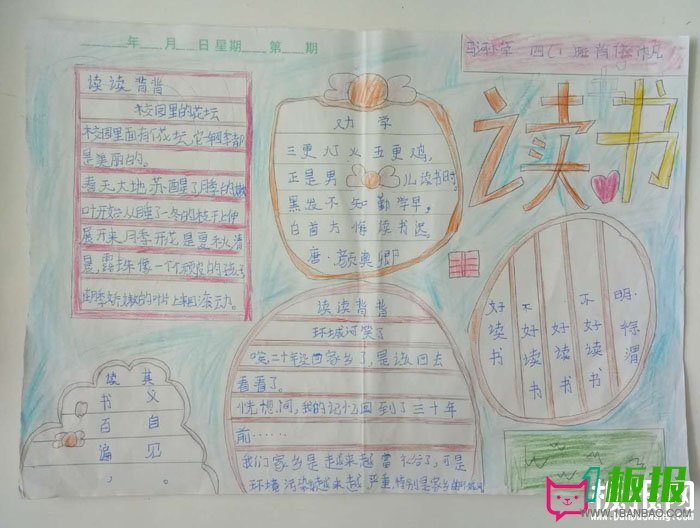 年 月 日 星期 第 期
读书
读读背背
校园里的花坛
校园里面有花坛,它四季都
是美丽的。
春天大地苏醒了,月季的嫩
叶开始从睡了一冬的枝子上伸
展开来,月季开花是夏秋清
晨,露珠像一个个顽皮的孩子
娇嫩的叶片上来回滚动。
劝学
三更灯火五更鸡,
正是男儿读书时。
黑发不知勤学早,
白首方悔读书迟。
唐·颜真卿
读读背背
环城河笑了
哈,二十年没回家乡了,是该回去
看看了。
恍惚间,我的记忆回到了三十年
前……
我们家乡是越来越富裕了,可是
环境污染越来越严重,特别是家乡
明·徐渭
不好读书
好读书
不好读书
好读书
读书百遍
其义自见。
1板报
WWW.1BANBAO.COM